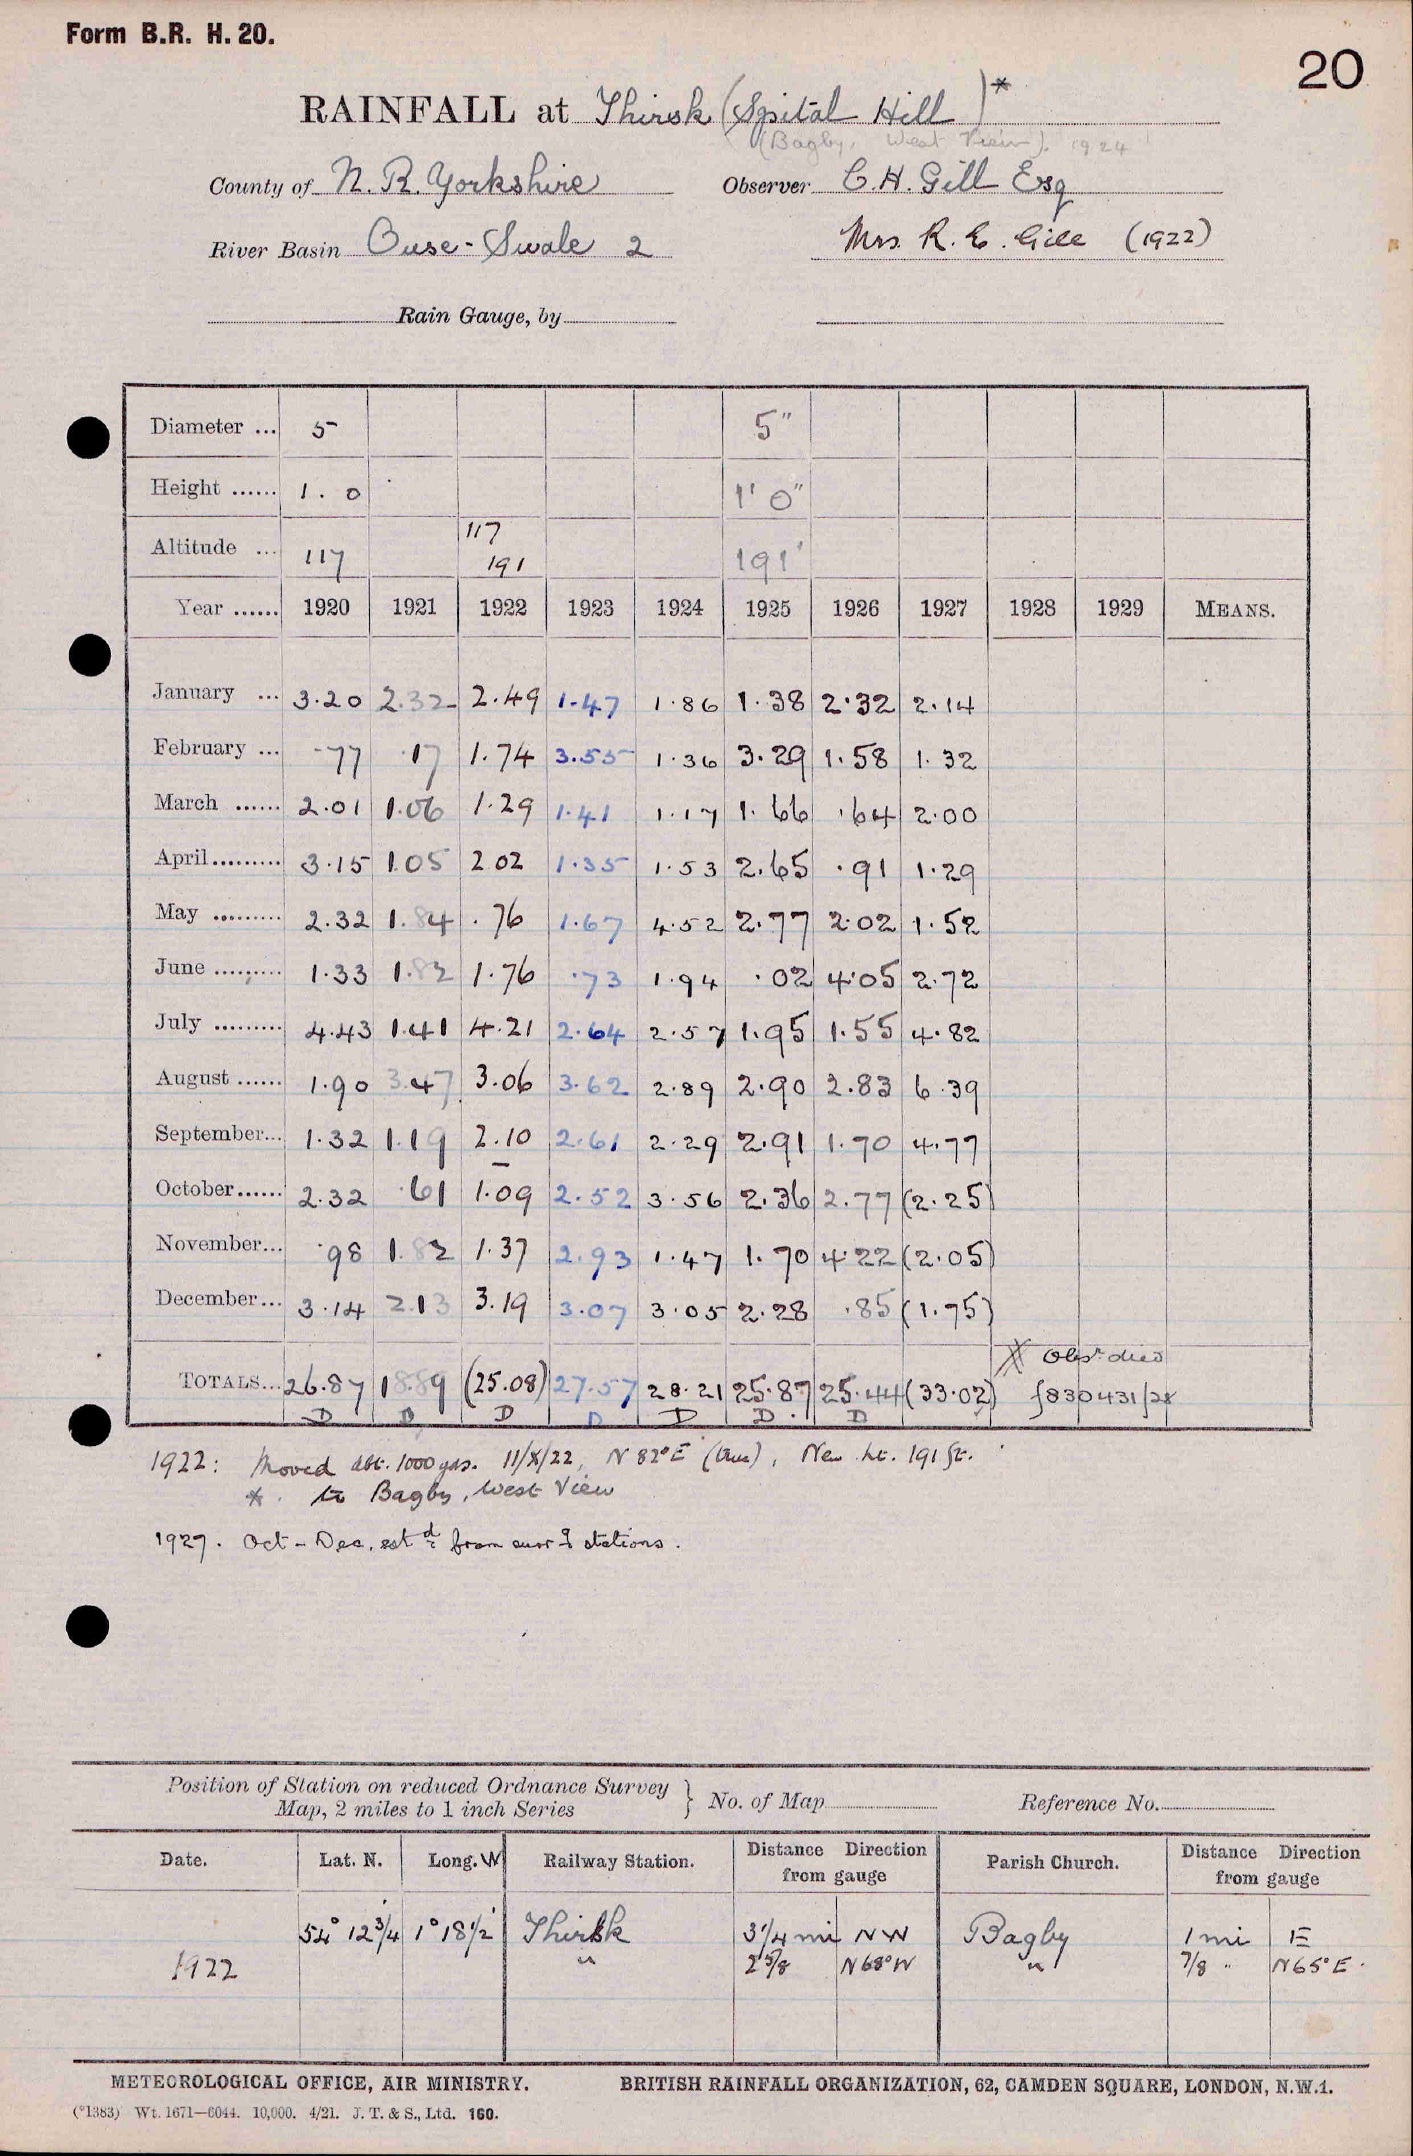 Form B.R. H. 20.
20
RAINFALL at Thirsk (Spital Hill)*
(Bagby, West View). 1924
County of N. R. Yorkshire Observer C. H. Gill Esq
River Basin Ouse - Swale 2 Mrs. R. E. Gill (1922)
Rain Gauge, by
Diameter ... 5 5"
Height ...... 1. 0 1' 0"
Altitude ... 117 117 191 191'
Year ...... 1920 1921 1922 1923 1924 1925 1926 1927 1928 1929 MEANS.
January ... 3.20 2.32 2.49 1.47 1.86 1.38 2.32 2.14
February ... .77 .17 1.74 3.55 1.36 3.29 1.58 1.32
March ...... 2.01 1.06 1.29 1.41 1.17 1.66 .64 2.00
April......... 3.15 1.05 2.02 1.35 1.53 2.65 .91 1.29
May ......... 2.32 1.84 .76 1.67 4.52 2.77 2.02 1.52
June ......... 1.33 1.82 1.76 .73 1.94 .02 4.05 2.72
July ......... 4.43 1.41 4.21 2.64 2.57 1.95 1.55 4.82
August ...... 1.90 3.47 3.06 3.62 2.89 2.90 2.83 6.39
September... 1.32 1.19 2.10 2.61 2.29 2.91 1.70 4.77
October...... 2.32 .61 1.09 2.52 3.56 2.36 2.77 (2.25)
November... .98 1.82 1.37 2.93 1.47 1.70 4.22 (2.05)
December... 3.14 2.13 3.19 3.07 3.05 2.28 .85 (1.75)
* Obsr. died
TOTALS... 26.87 18.89 (25.08) 27.57 28.21 25.87 25.44 (33.02) {830431/28
D D D D D D D
1922: Moved abt. 1000 yds. 11/X/22, N 82° E (true), New ht. 191 ft.
* to Bagby, West View
1927. Oct - Dec. estd from surrg stations.
Position of Station on reduced Ordnance Survey Map, 2 miles to 1 inch Series } No. of Map Reference No.
Date. Lat. N. Long. W Railway Station. Distance Direction from gauge Parish Church. Distance Direction from gauge
54° 12 3/4' 1° 18 1/2' Thirsk 3 1/4 mi NW Bagby 1 mi E
1922 " 2 5/8 N 68° W " 7/8 " N 65° E.
METEOROLOGICAL OFFICE, AIR MINISTRY. BRITISH RAINFALL ORGANIZATION, 62, CAMDEN SQUARE, LONDON, N.W.1.
(*1383) Wt. 1671—6044. 10,000. 4/21. J. T. & S., Ltd. 160.